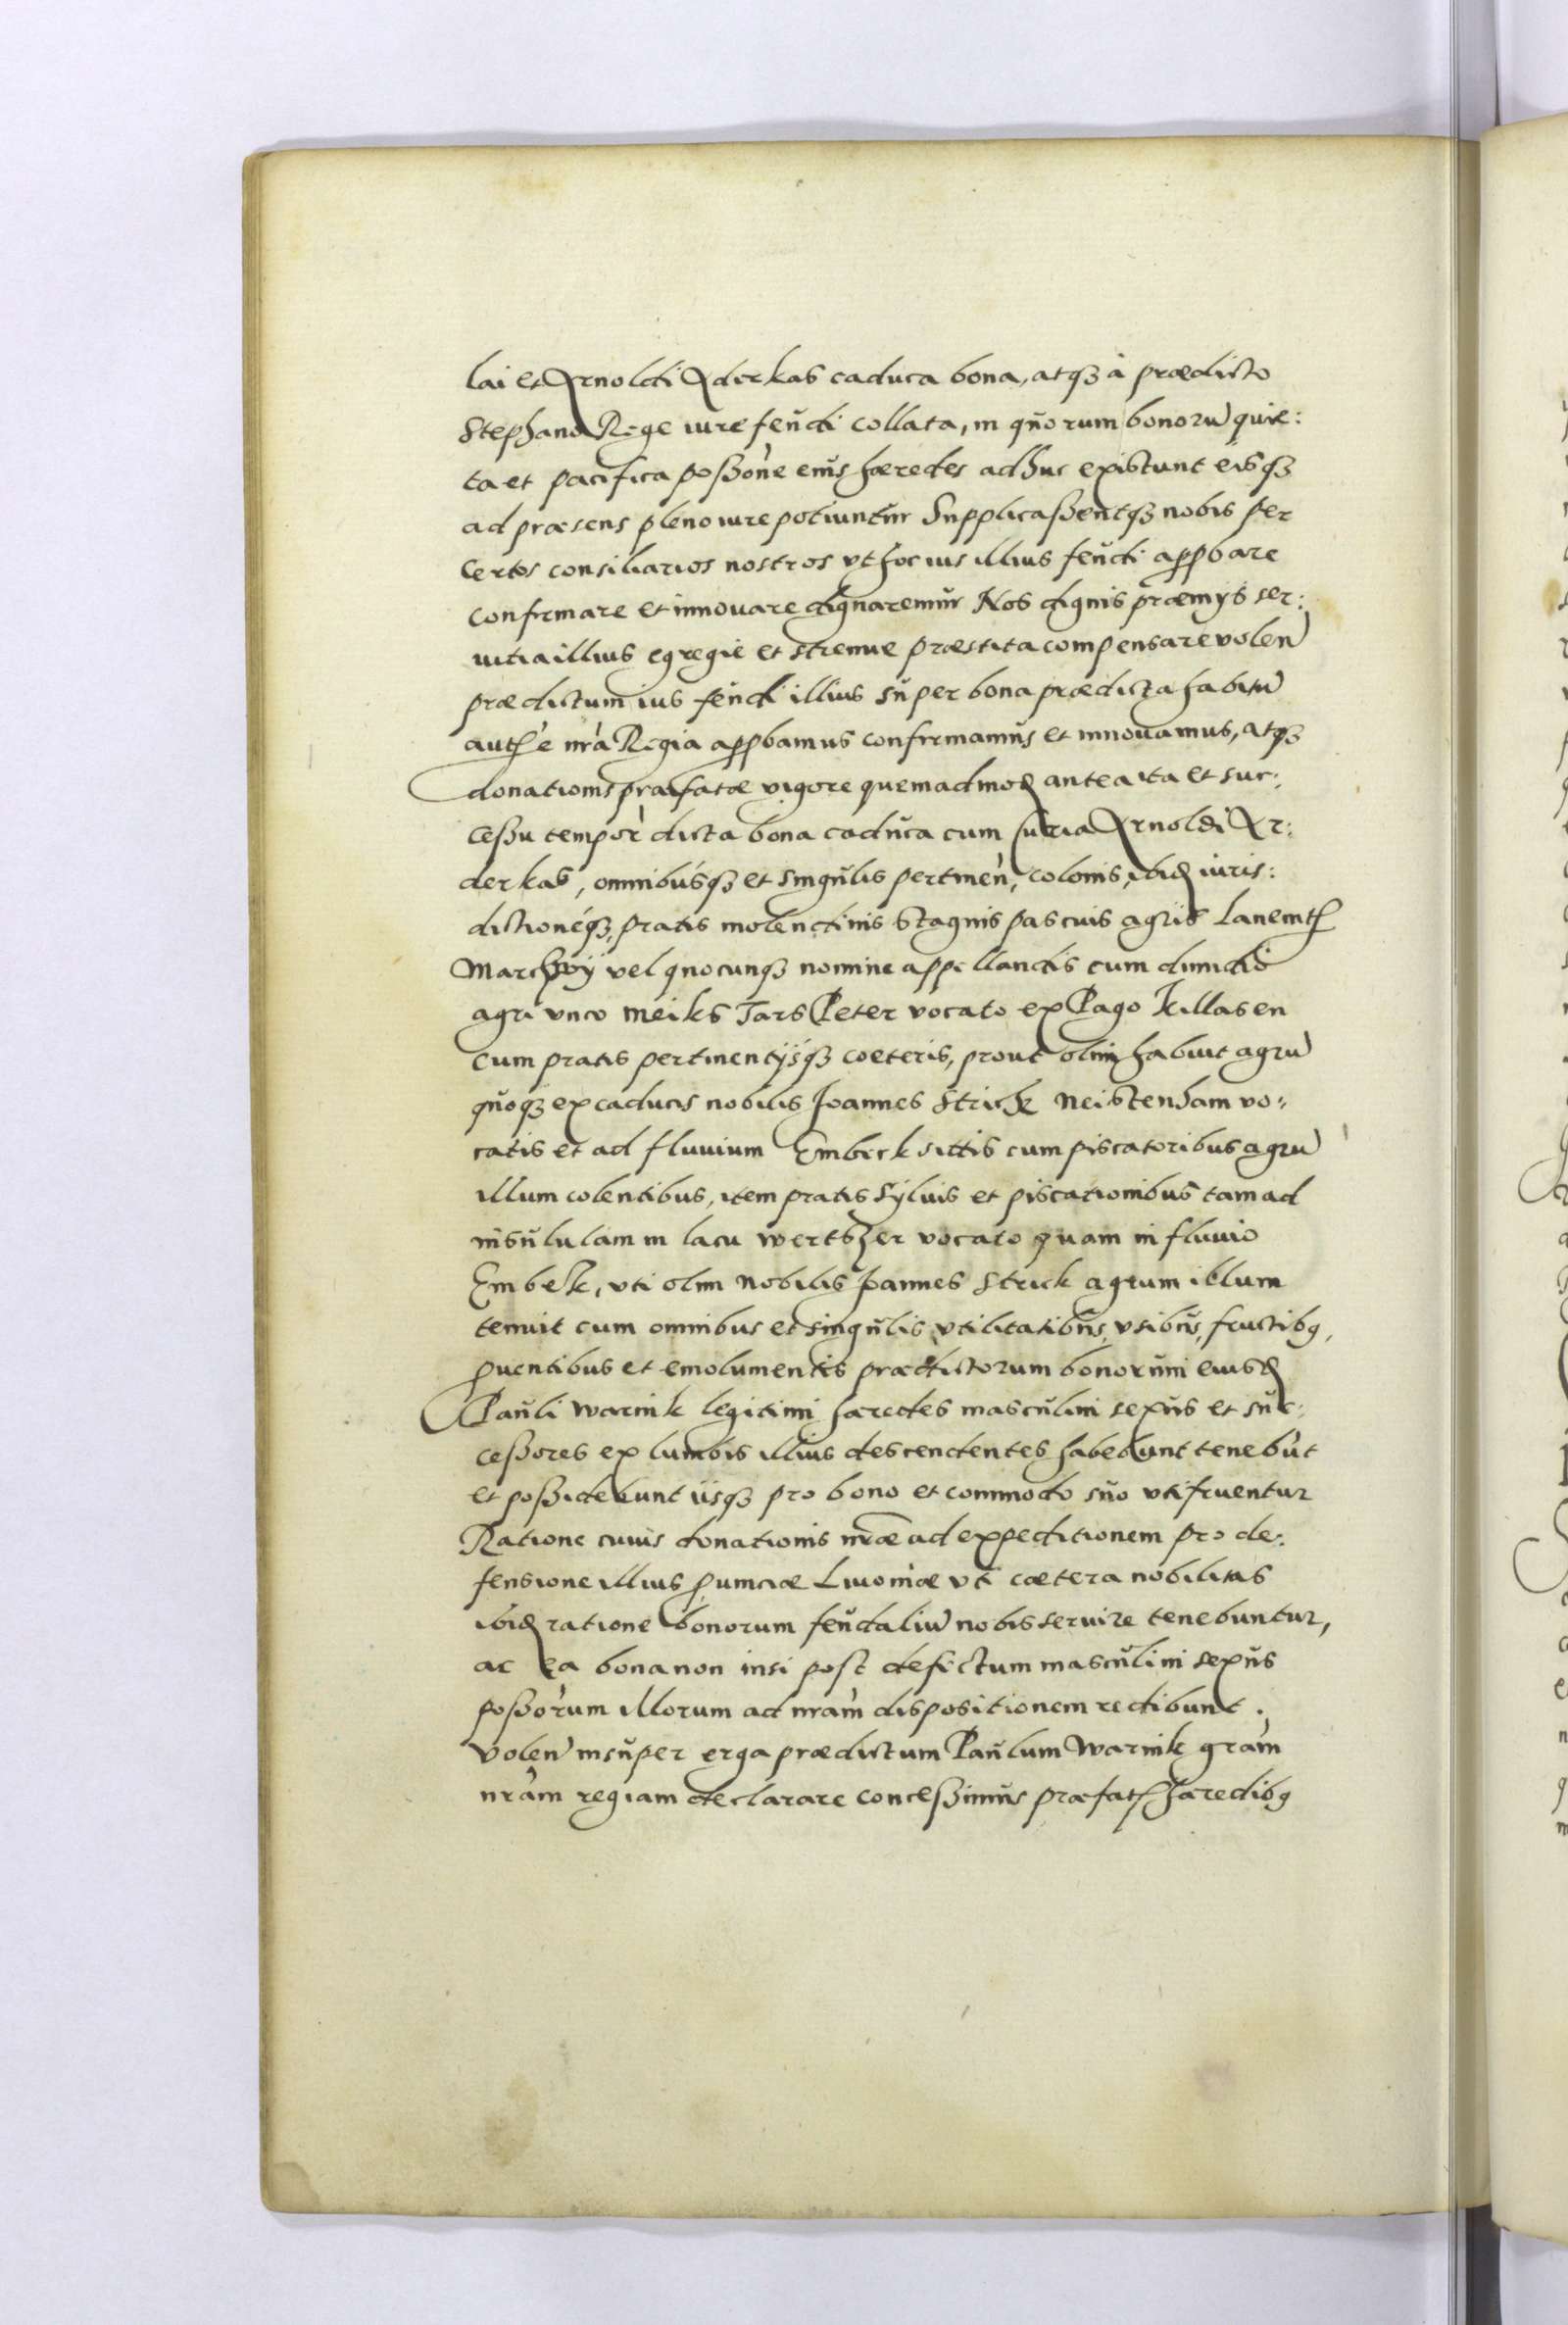 lai et Arnoldi Aderkas caduca bona, atqꝫ à prædicto
Stephano Rege iure feudi collata, in quorum bonorũ quie:
ta et pacifica poßõne eius hæredes adhuc existunt eisqꝫ
ad præsens pleno iure potiuntur Supplicaßentqꝫ nobis per
Certos consiliarios nostros vt hoc ius illius feudi apꝓbare
confirmare et innouare dignaremur Nos dignis præmijs ser:
uitia illius egregie et strenue præstita compensare volen̄
prædictum ius feudi illius super bona prædicta habitũ
auth̄e nr̄a Regia apꝓbamus confirmamus et innouamus, atqꝫ
donationis præfatæ vigore quemadmod̄ antea ita et suc:
ceßu tempor̄ dicta bona caduca cum curia Arnoldi A:
derkas, omnibusqꝫ et singulis pertinen̄, colonis, ibid̄ iuris:
dictioneqꝫ, pratis molendinis Stagnis pascuis agris
vel quocunqꝫ nomine appellandis cum dimidio
agri vnco Meiks Tars Peter vocato ex Pago Killasen
cum pratis pertinentijsqꝫ cæteris, prout olim habuit agrũ
quoqꝫ ex caducis nobilis Joannes Strick Neistenham vo:
catis et ad fluuium Embeck sittis cum piscatoribus agrũ
illum colentibus, item pratis syluis et piscationibus tam ad
insululam in lacu Wertsher vocato quam in fluuio
Embek, vti olim nobilis Joannes Strick agrum illum
tenuit cum omnibus et singulis vtilitatibus, vsibus, fructibꝯ,
ꝓuentibus et emolumentis prædictorum bonorum eiusd̄
Pauli Warnik legitimi hæredes masculini sexus et suc:
ceßores ex lumbis illius descendentes habebunt tenebũt
et poßidebunt iisqꝫ pro bono et commodo suo vti fruentur
Ratione cuius donationis nr̄æ ad expeditionem pro de:
fensione illius ꝓuinciæ Liuoniæ vti cætera nobilitas
ibid̄ ratione bonorum feudaliũ nobis seruire tenebuntur,
ac ea bona non insi post defectum masculini sexus
poßor̄um illorum ad nr̄am dispositionem redibunt.
Volen̄ insuper erga prædictum Paulum Warnik gr̄am
nr̄am regiam declarare concessimus præfat̄ hæredibꝯ